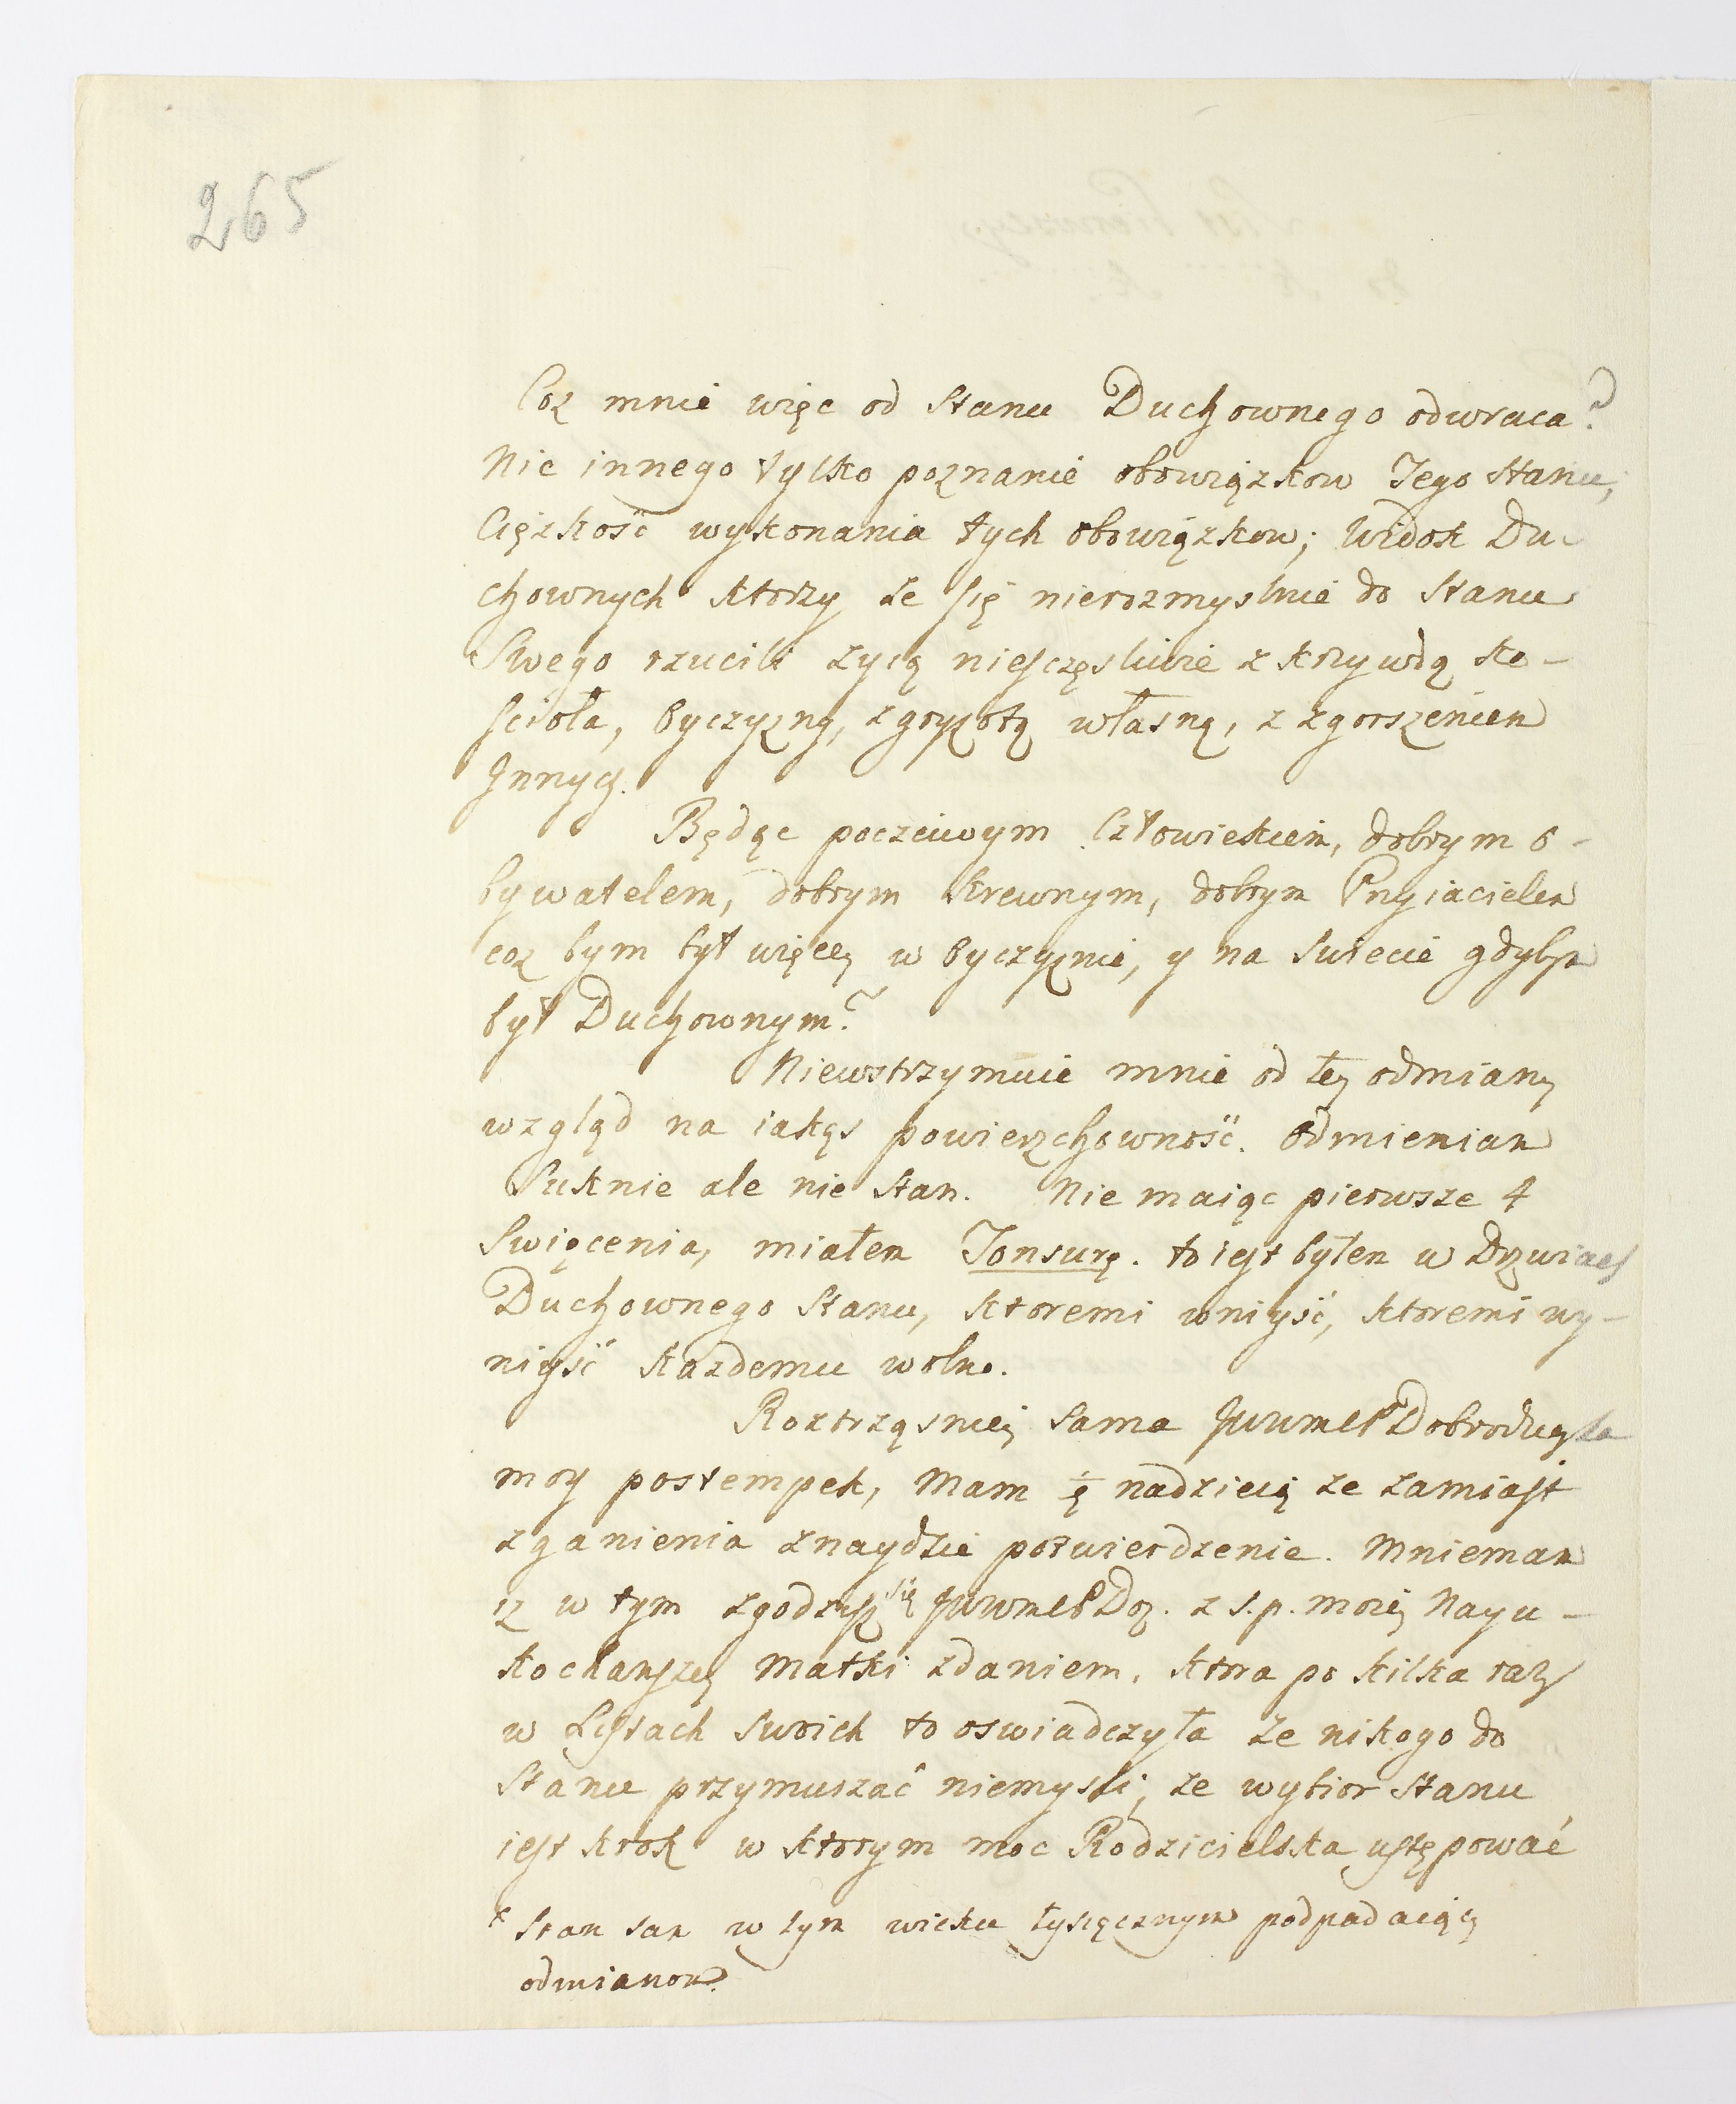 265
Coz mnie więc od Stanu Duchownego odwraca?
Nic innego tylko poznanie obowiązkow Tego Stanu,
Cięzkość wykonania tych obowiązkow; Widok Du-
chownych ktorzy ze się nierozmyslnie do Stanu
Swego rzucili zyią nieszczęsliwie z krzywdą Ko-
scioła, Oyczyzny, zgryzotą własną, z zgorszeniem
Innych.
Będąc poczciwym Człowiekiem, dobrym o-
bywatelem, dobrym Krewnym, dobrym Przyiacielem
coz bym był więcey w Oyczyznie, y na Swiecie gdybym
był Duchownym?
Niewstrzymuie mnie od tey odmiany
wzgląd na iakąs powierzchowność. Odmieniam
Suknie ale nie Stan. Nie maiąc pierwsze 4
Swięcenia, miałem Tonsurę. to iest byłem w Drzwiach
Duchownego Stanu, ktoremi wniyść, ktoremi wy-
niyść kazdemu wolno.
Roztrząsniey sama JWWMCP Dobrodzieyka
moy postempek, Mam nadzieią ze zamiast
zganienia znaydzie potwierdzenie. Mniemam
iz w tym zgodzisz się JWWMCP Dob. z s.p. moiey Nayu-
kochanszey Matki zdaniem, ktora po kilka razy
w Listach swoich to oswiadczyła ze nikogo do
Stanu przymuszać niemysli, ze wybior Stanu
iest krok w ktorym moc Rodzicielska ustępować
* Stan sam w tym wieku tysiącznym podpadaiący
odmianom.